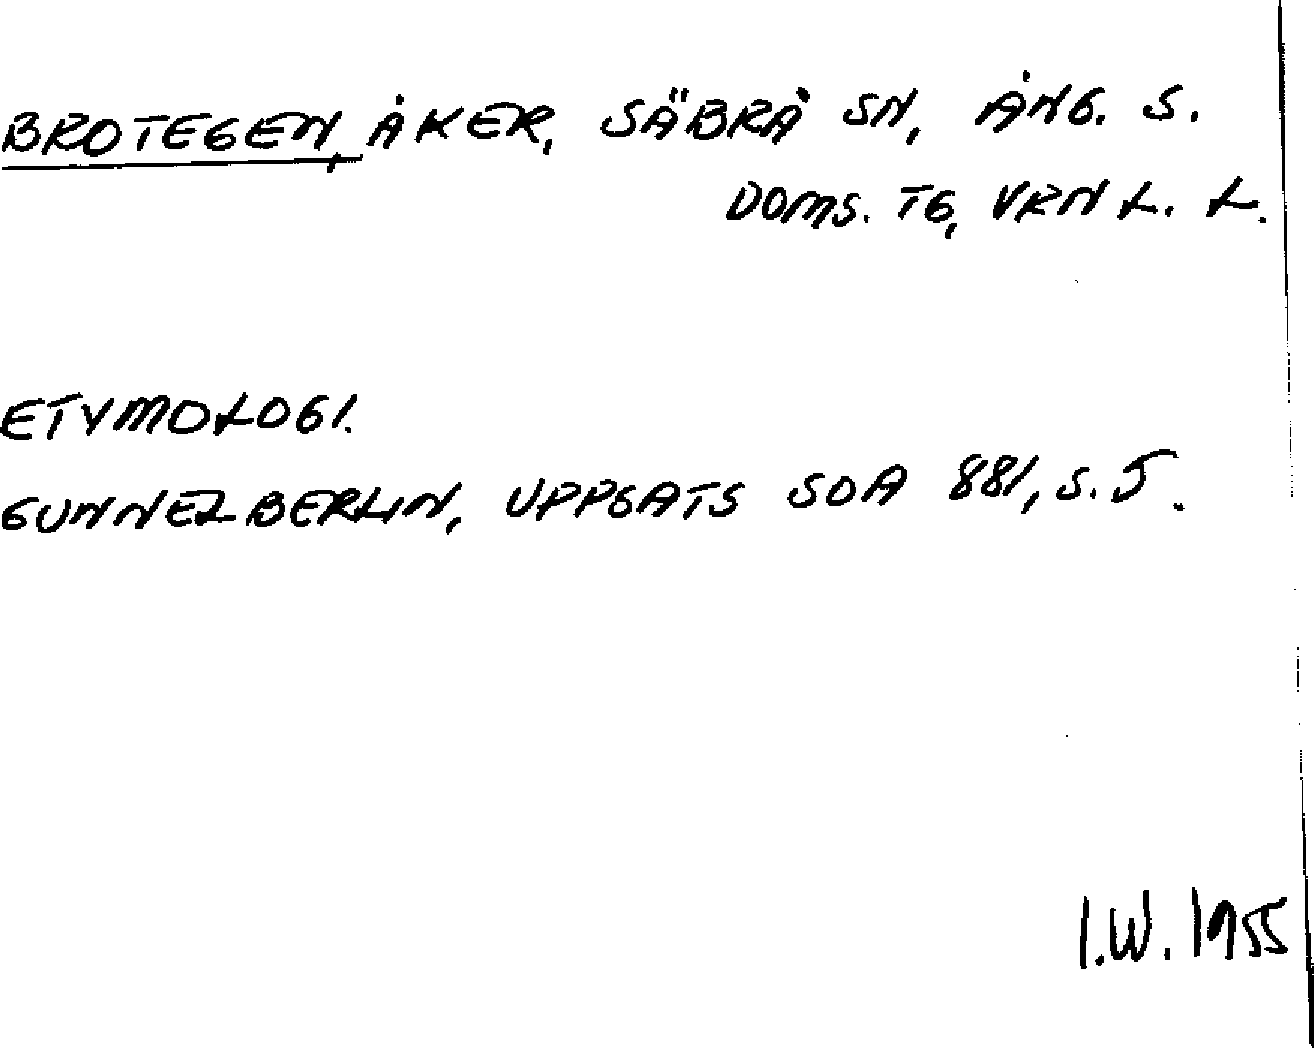 BROTEGEN, ÅKER, SÄBRÅ SN, ÅNG. S.
DOMS. TG, VRN L. L.
ETYMOLOGI.
GUNNEL BERLIN, UPPSATS SOA 881, S. 5.
I.W. 1955